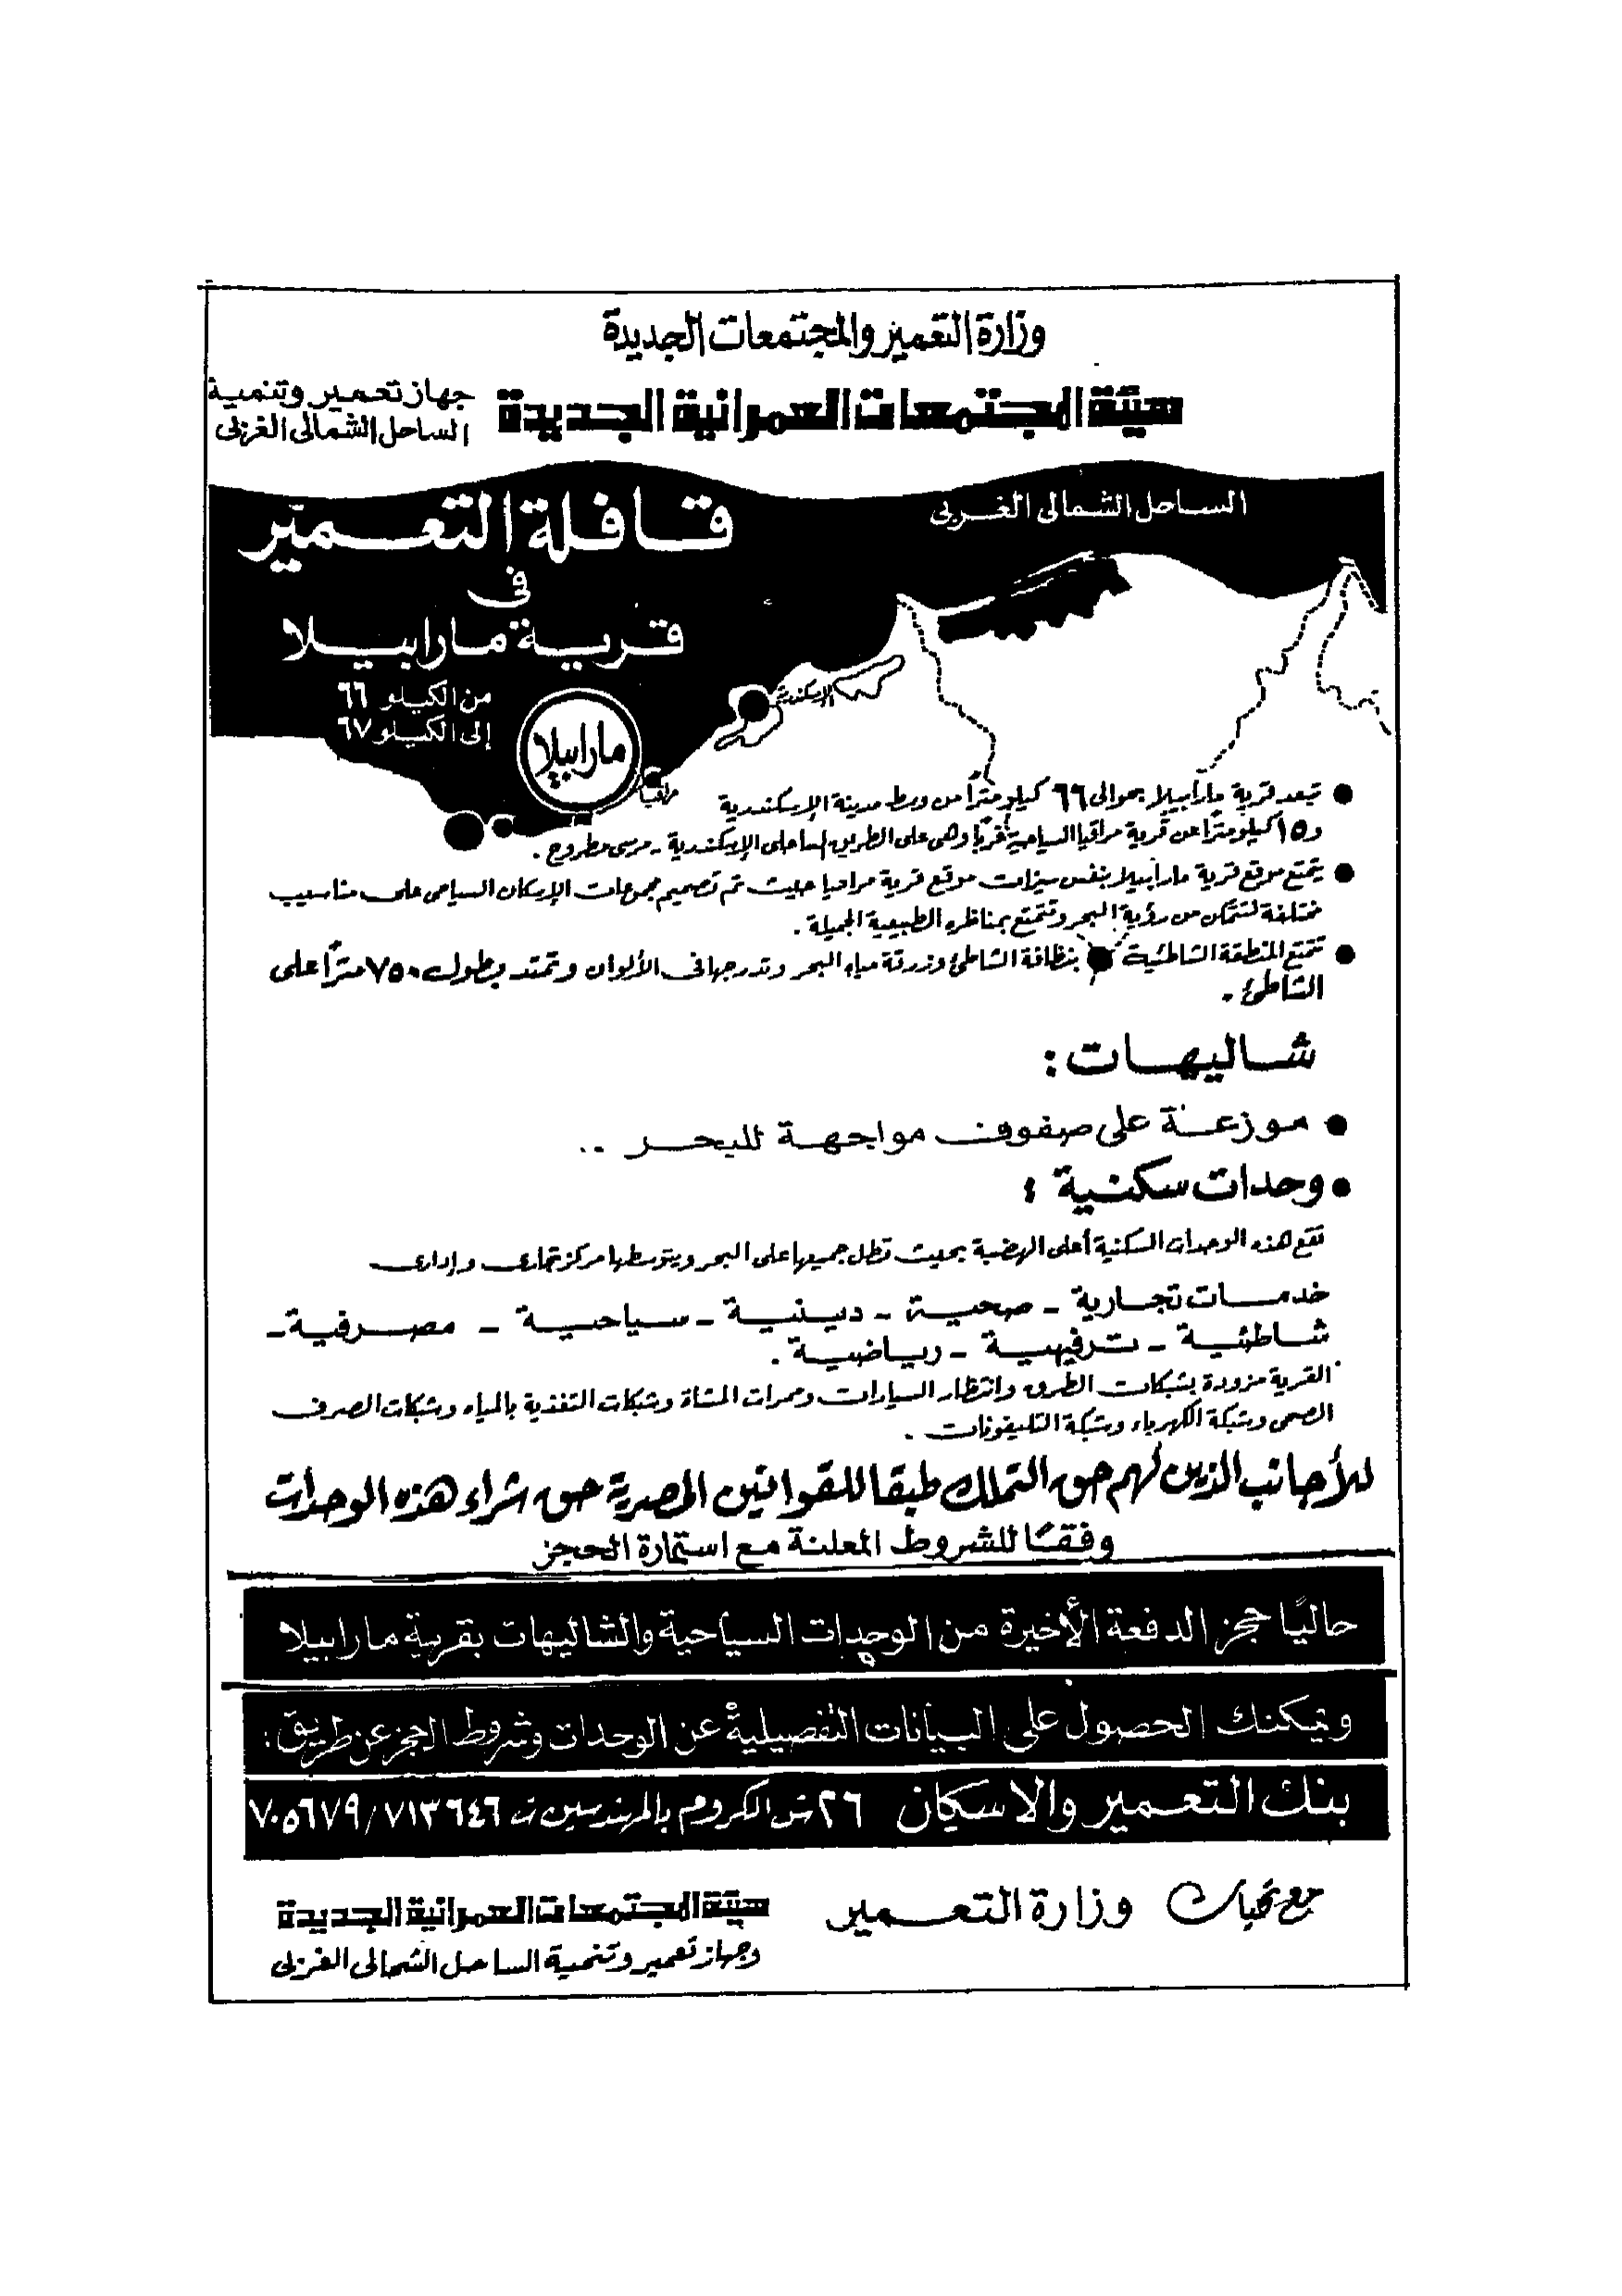 وزارة التعمير والمجتمعات الجديدة
هيئة المجتمعات العمرانية الجديدة
جهاز تعمير وتنمية
الساحل الشمالى الغربى
الساحل الشمالى الغربى
قافلة التعمير
فى
قرية مارابيلا
من الكيلو ٦٦
إلى الكيلو ٦٧
الإسكندرية
مارابيلا
مراقيا
● تبعد قرية مارابيلا بحوالى ٦٦ كيلومترًا من وسط مدينة الإسكندرية
و١٥ كيلومترًا عن قرية مراقيا السياحية غربًا وهى على الطريق الساحلى الإسكندرية - مرسى مطروح .
● يتمتع موقع قرية مارابيلا بنفس ميزات موقع قرية مراقيا حيث تم تصميم مجموعات الإسكان السياحى على مناسيب
مختلفة لتتمكن من رؤية البحر وتتمتع بمناظره الطبيعية الجميلة .
● تتمتع المنطقة الشاطئية بنظافة الشاطئ وزرقة مياه البحر وتدرجها فى الألوان وتمتد بطول ٧٥٠ مترًا على
الشاطئ .
شاليهات :
● موزعة على صفوف مواجهة للبحر ..
● وحدات سكنية :
تقع هذه الوحدات السكنية أعلى الهضبة بحيث تطل جميعها على البحر ويتوسطها مركز تجارى وإدارى
خدمات تجارية - صحية - دينية - سياحية - مصرفية -
شاطئية - ترفيهية - رياضية .
القرية مزودة بشبكات الطرق وانتظار السيارات وممرات المشاة وشبكات التغذية بالمياه وشبكات الصرف
الصحى وشبكة الكهرباء وشبكة التليفونات .
للأجانب الذين لهم حق التملك طبقا للقوانين المصرية حق شراء هذه الوحدات
وفقًا للشروط المعلنة مع استمارة الحجز
حاليًا حجز الدفعة الأخيرة من الوحدات السياحية والشاليهات بقرية مارابيلا
ويمكنك الحصول على البيانات التفصيلية عن الوحدات وشروط الحجز عن طريق :
بنك التعمير والاسكان ٢٦ ش الكروم بالمهندسين ت ٧١٣٦٤٦ / ٧٠٥٦٧٩
مع تحيات وزارة التعمير
هيئة المجتمعات العمرانية الجديدة
وجهاز تعمير وتنمية الساحل الشمالى الغربى